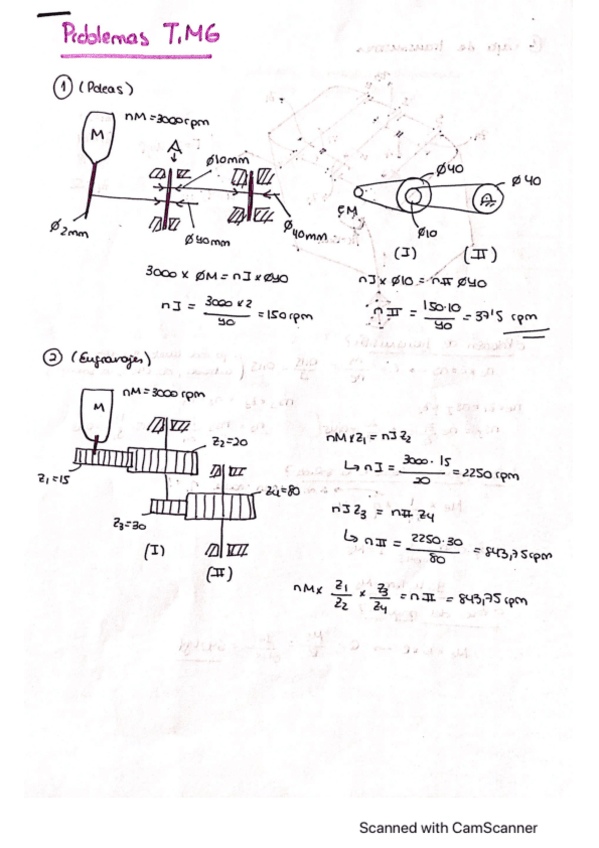 Problemas T.MG
① (Poleas)
nM = 3000 rpm
M
A
Ø10mm
Ø2mm
Ø40mm
Ø40mm
Ø40
Ø40
Ø10
(I)
(II)
3000 x ØM = nI x Ø40
nI = 3000 x 2 / 40 = 150 rpm
nI x Ø10 = nII Ø40
nII = 150·10 / 40 = 37'5 rpm
② (Engranajes)
nM = 3000 rpm
M
Z2=20
Z1=15
Z4=80
Z3=30
(I)
(II)
nM x Z1 = nI Z2
↳ nI = 3000·15 / 20 = 2250 rpm
nI Z3 = nII Z4
↳ nII = 2250·30 / 80 = 843,75 rpm
nM x Z1/Z2 x Z3/Z4 = nII = 843,75 rpm
Scanned with CamScanner